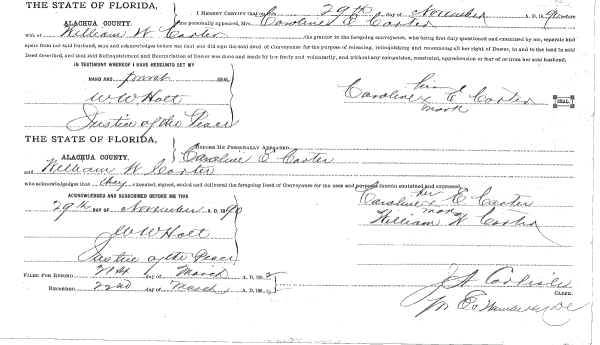 THE STATE OF FLORIDA,
ALACHUA COUNTY.
I HEREBY CERTIFY that on this 29th day of November A. D. 1890 before
me personally appeared, Mrs. Caroline E Carter
wife of William W Carter the grantor in the foregoing conveyance, who being first duly questioned and examined by me, separate and
apart from her said husband, says and acknowledges before me that she did sign the said deed of Conveyance for the purpose of releasing, relinquishing and renouncing all her right of Dower, in and to the land in said
Deed described, and that said Relinquishment and Renunciation of Dower was done and made by her freely and voluntarily, and without any compulsion, constraint, apprehension or fear of or from her said husband.
IN TESTIMONY WHEREOF I HAVE HEREUNTO SET MY
HAND AND SEAL
W W Holt
Justice of the Peace
Caroline x E Carter
mark
SEAL.
THE STATE OF FLORIDA,
ALACHUA COUNTY.
BEFORE ME PERSONALLY APPEARED
Caroline E Carter
and William W Carter
who acknowledges that they executed, signed, sealed and delivered the foregoing Deed of Conveyance for the uses and purposes therein contained and expressed.
ACKNOWLEDGED AND SUBSCRIBED BEFORE ME THIS
29th DAY OF November A. D. 1890
W W Holt
Justice of the Peace
her
Caroline x E Carter
mark
William W Carter
FILED FOR RECORD 21st day of March A. D. 189
RECORDED 22nd day of March A. D. 189
J A Carlisle
CLERK.